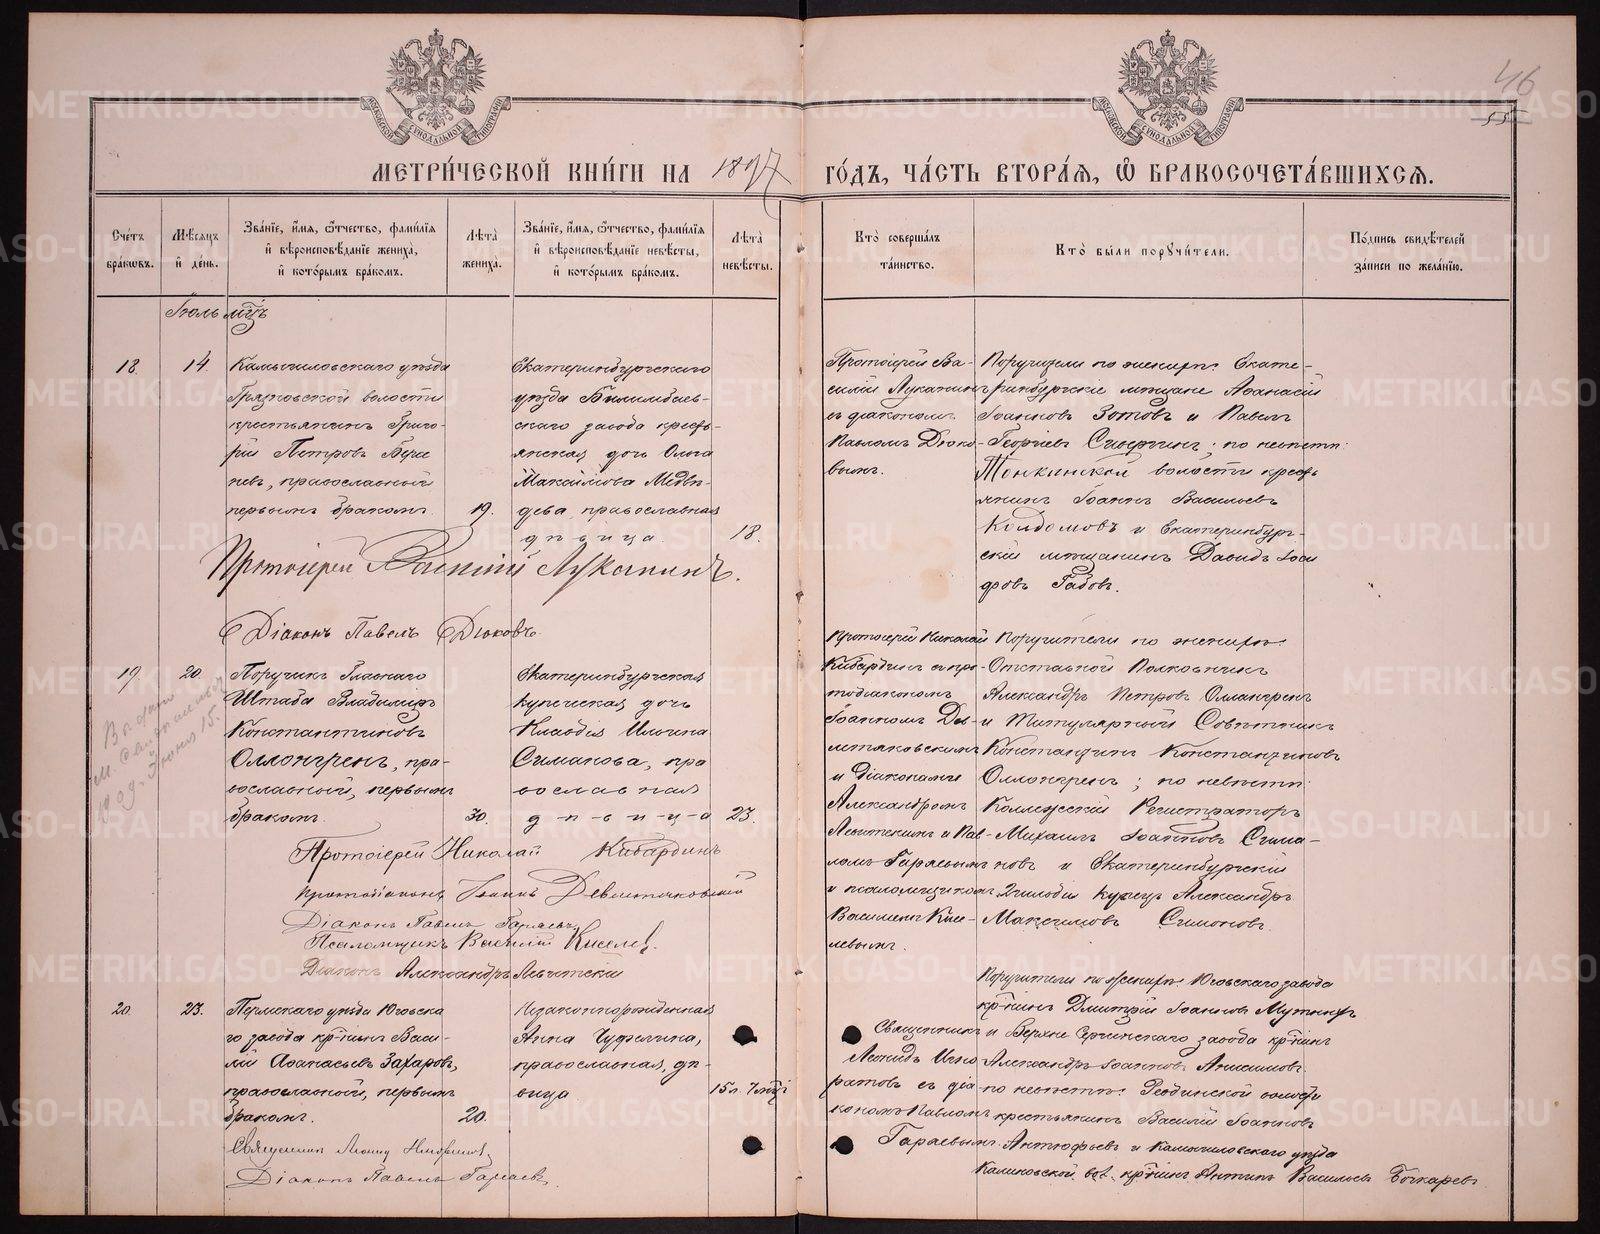 46
55
МЕТРИ́ЧЕСКОЙ КНИ́ГИ НА 1897 ГО́ДЪ, ЧА́СТЬ ВТОРА́Я, Ѿ БРАКОСОЧЕТА́ВШИХСЯ.
Сче́тъ бра́ковъ.
Мѣ́сяцъ и҆ де́нь.
Зва́нїе, и҆́мя, ѻ҆́тчество, фами́лїя и҆ вѣроисповѣ́данїе жениха̀, и҆ кото́рымъ бра́комъ.
Лѣта̀ жениха̀.
Зва́нїе, и҆́мя, ѻ҆́тчество, фами́лїя и҆ вѣроисповѣ́данїе невѣ́сты, и҆ кото́рымъ бра́комъ.
Лѣта̀ невѣ́сты.
Кто̀ соверша́лъ та́инство.
Кто̀ бы́ли пору̑чи́тели.
По́дпись свидѣ́телей за́писи по жела́нїю.
Іюль мцъ
18.
14.
Камышловскаго уѣзда
Грязновской волости
крестьянинъ Григо-
рій Петровъ
невъ, православный
первымъ бракомъ.
19.
Екатеринбургскаго
уѣзда Билимбаев-
скаго завода кресть-
янская дочь Ольга
Максимова Медвѣ-
дева православная
дѣвица.
18.
Протоіерей Ва-
силій Луканинъ
съ діакономъ
Павломъ Дюко-
вымъ.
Поручители по женихѣ: Екате-
ринбургскіе мѣщане Аѳанасій
Іоанновъ Зотовъ и Павелъ
Георгіевъ ; по невѣстѣ:
волости кресть
янинъ Іоаннъ Васильевъ
Колдомовъ и Екатеринбург-
скій мѣщанинъ Давидъ
Протоіерей Василій Луканинъ.
Діаконъ Павелъ Дюковъ
19.
20.
Поручикъ Главнаго
Штаба Владиміръ
Константиновъ
Оллонгренъ, пра-
вославный, первымъ
бракомъ.
30.
Екатеринбургская
купеческая дочь
Клавдія Ильина
Симанова, пра
вославная
дѣвица
23.
Протоіерей Николай
Кибардинъ съ про-
тодіакономъ
Іоанномъ Де-
мѣтяковскимъ
и діаконами
Александромъ
Левитскимъ и Пав-
ломъ Гаряевымъ
и псаломщикомъ
Василіемъ Кисе-
левымъ.
Поручители по женихѣ:
Отставной Полковникъ
Александръ Петровъ Оллонгренъ
и Титулярный Совѣтникъ
Константинъ Константиновъ
Оллонгренъ; по невѣстѣ:
Коллежскій Регистраторъ
Михаилъ Іоанновъ Сима-
новъ и Екатеринбургскій
2 гильдіи купецъ Александръ
Максимовъ Симоновъ.
1909 г. Іюня 15.
Протоіерей Николай Кибардинъ
Протодіаконъ Іоаннъ
Діаконъ Павелъ Гаряевъ
Псаломщикъ Василій Киселевъ.
Діаконъ Александръ Левитскій
20.
23.
Пермскаго уѣзда Юговска
го завода кр-нинъ Васи-
лій Аѳанасьевъ Захаровъ,
православный, первымъ
бракомъ.
20.
Незаконнорожденная
Анна Чуфелина,
православная, дѣ-
вица
15 л. 7 мцъ
Священникъ
Леонидъ Игно
ратовъ съ діа-
кономъ Павломъ
Гаряевымъ.
Поручители по женихѣ: Юговскаго завода
кр-нинъ Дмитрій Іоанновъ
и Верхне Сергинскаго завода кр-нинъ
Александръ Іоанновъ Анисимовъ
по невѣстѣ: волости
крестьянинъ Василій Іоанновъ
Антюфьевъ и Камышловскаго уѣзда
Калиновской вол. кр-нинъ Антипъ Васильевъ Бочкаревъ.
Священникъ Леонид
Діаконъ Павелъ Гаряевъ.